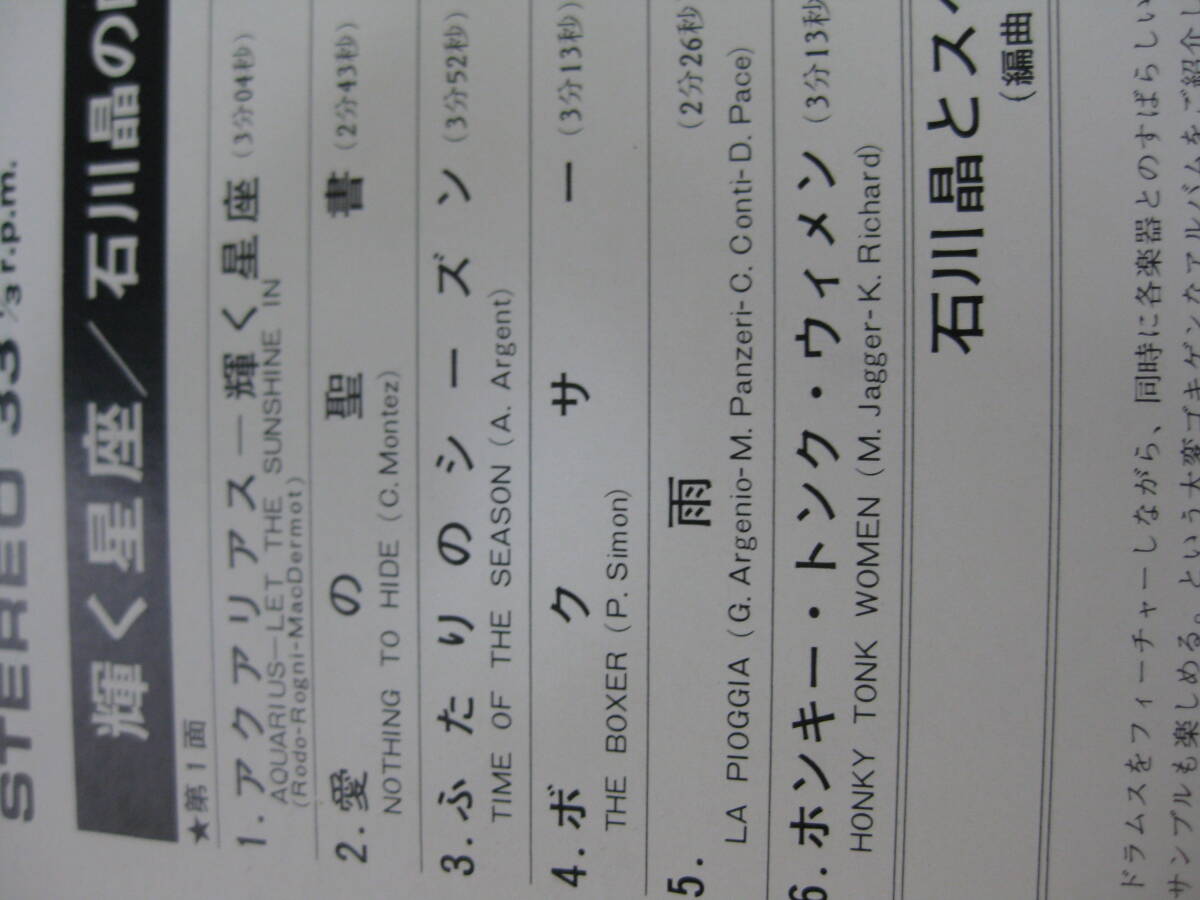 STEREO 33⅓ r.p.m.
輝く星座／石川晶の
★第1面
1.アクアリアス―輝く星座 (3分04秒)
AQUARIUS—LET THE SUNSHINE IN
(Rodo-Rogni-MacDermot)
2.愛の聖書 (2分43秒)
NOTHING TO HIDE (C. Montez)
3.ふたりのシーズン (3分52秒)
TIME OF THE SEASON (A. Argent)
4.ボクサー (3分13秒)
THE BOXER (P. Simon)
5. 雨 (2分26秒)
LA PIOGGIA (G. Argenio-M. Panzeri-C. Conti-D. Pace)
6.ホンキー・トンク・ウィメン (3分13秒)
HONKY TONK WOMEN (M. Jagger-K. Richard)
石川晶とス
(編曲
ドラムスをフィーチャーしながら、同時に各楽器とのすばらしい
サンプルも楽しめる。という大変ゴキゲンなアルバムをご紹介し